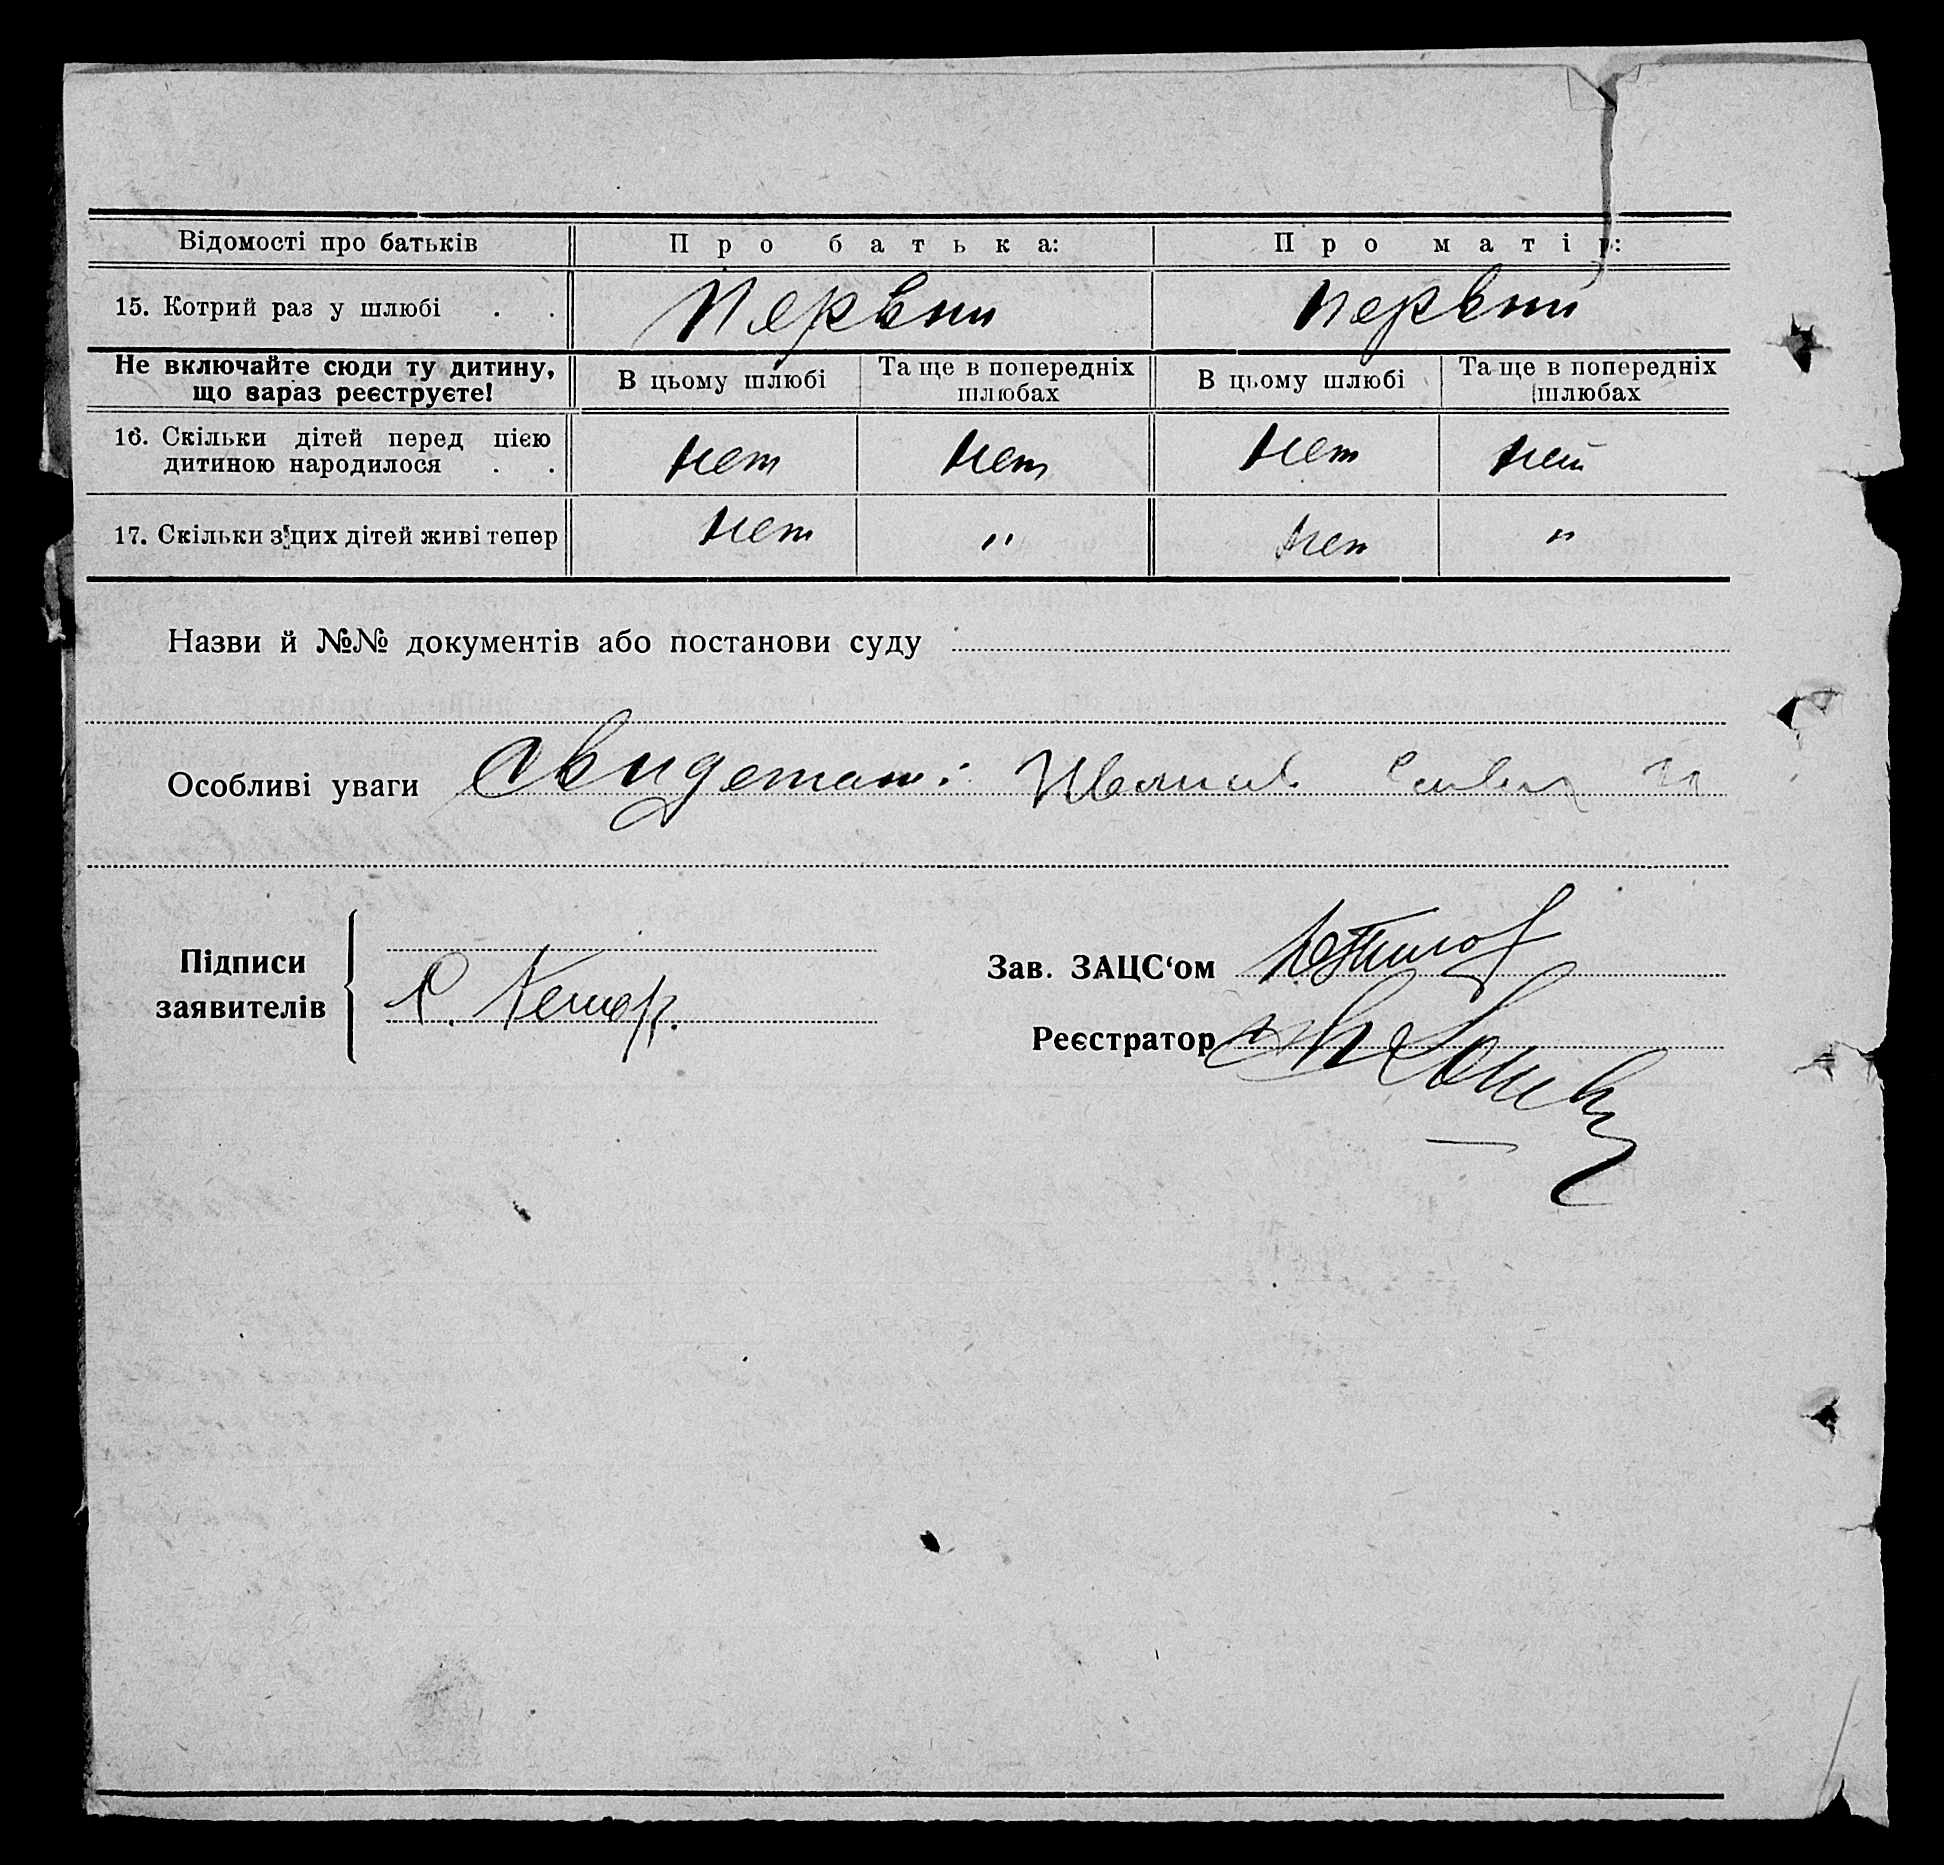 Відомості про батьків Про батька: Про матір:
15. Котрий раз у шлюбі . . Первни Первни
Не включайте сюди ту дитину, що зараз реєструєте! В цьому шлюбі Та ще в попередніх шлюбах В цьому шлюбі Та ще в попередніх шлюбах
16. Скільки дітей перед цією
дитиною народилося . . нет нет нет нет
17. Скільки з цих дітей живі тепер нет " нет "
Назви й №№ документів або постанови суду
Особливі уваги
Підписи
заявителів
Зав. ЗАЦС‘ом
Реєстратор